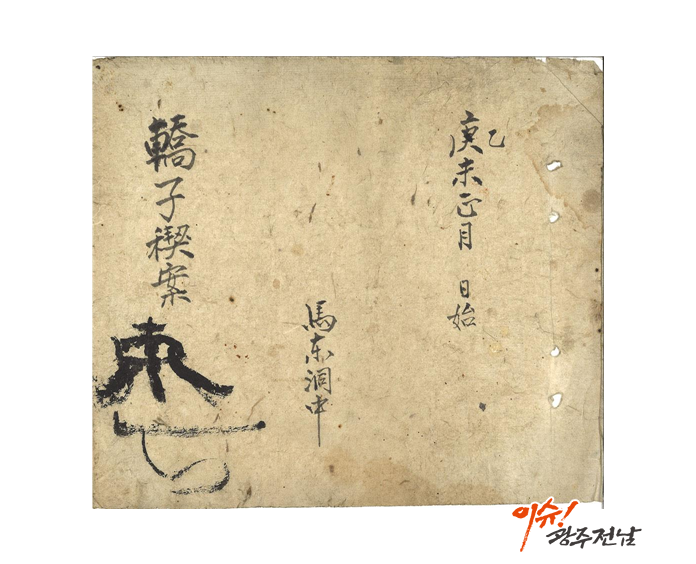 乙
庚未正月 日始
馬東洞中
轎子稧案
이슈!
광주전남